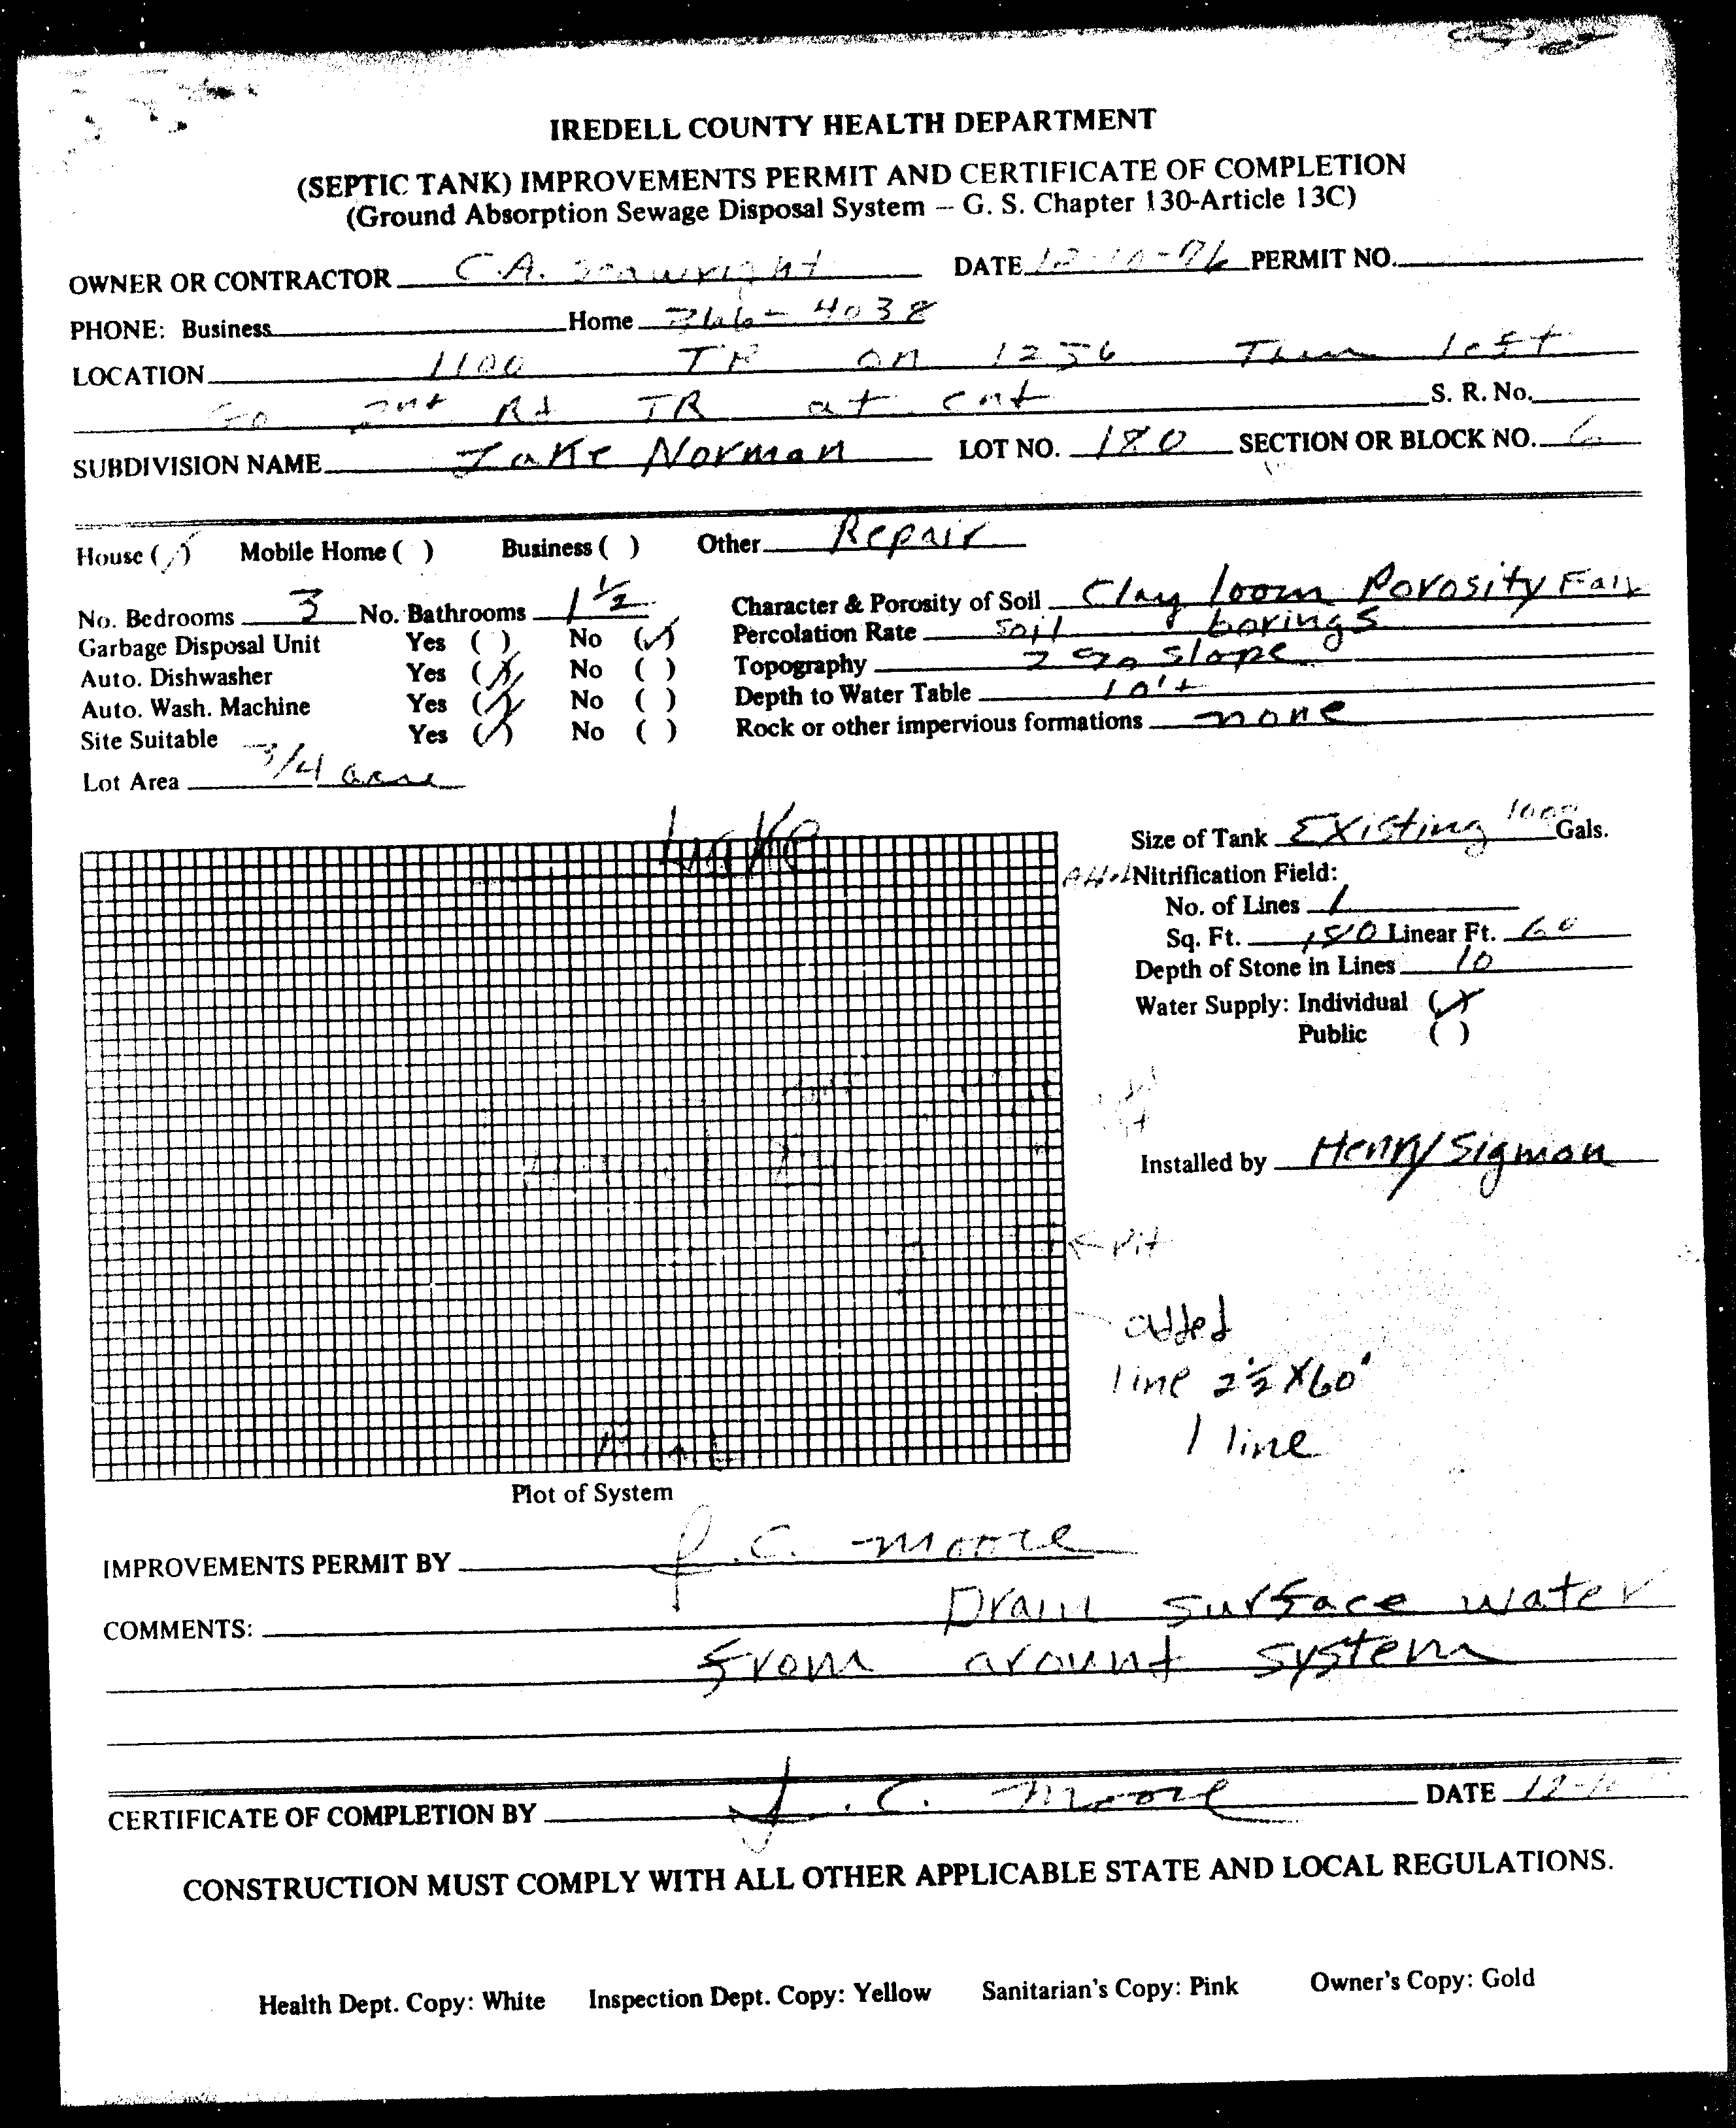 IREDELL COUNTY HEALTH DEPARTMENT
(SEPTIC TANK) IMPROVEMENTS PERMIT AND CERTIFICATE OF COMPLETION
(Ground Absorption Sewage Disposal System – G. S. Chapter 130-Article 13C)
OWNER OR CONTRACTOR C.A. Seawright DATE PERMIT NO.
PHONE: Business Home 366-4038
LOCATION 1100 TR on 1256 Then left
Go 2nd Rd TR at end S. R. No.
SUBDIVISION NAME Lake Norman LOT NO. 180 SECTION OR BLOCK NO. 6
House (✓) Mobile Home ( ) Business ( ) Other Repair
No. Bedrooms 3 No. Bathrooms 1 1/2 Character & Porosity of Soil Clay loom Porosity Fair
Garbage Disposal Unit Yes ( ) No (✓) Percolation Rate soil borings
Auto. Dishwasher Yes (✓) No ( ) Topography 2 % slope
Auto. Wash. Machine Yes (✓) No ( ) Depth to Water Table 10'+
Site Suitable Yes (✓) No ( ) Rock or other impervious formations none
Lot Area 3/4 acre
Lake
Size of Tank Existing 1000 Gals.
Nitrification Field:
No. of Lines 1
Sq. Ft. 150 Linear Ft. 60
Depth of Stone in Lines 10
Water Supply: Individual (✓)
Public ( )
Installed by Henry Sigmon
← Pit
added
line 2 1/2 X 60'
1 line
Plot of System
IMPROVEMENTS PERMIT BY J.C. Moore
COMMENTS: Drain surface water
from around system
CERTIFICATE OF COMPLETION BY J.C. Moore DATE
CONSTRUCTION MUST COMPLY WITH ALL OTHER APPLICABLE STATE AND LOCAL REGULATIONS.
Health Dept. Copy: White Inspection Dept. Copy: Yellow Sanitarian's Copy: Pink Owner's Copy: Gold